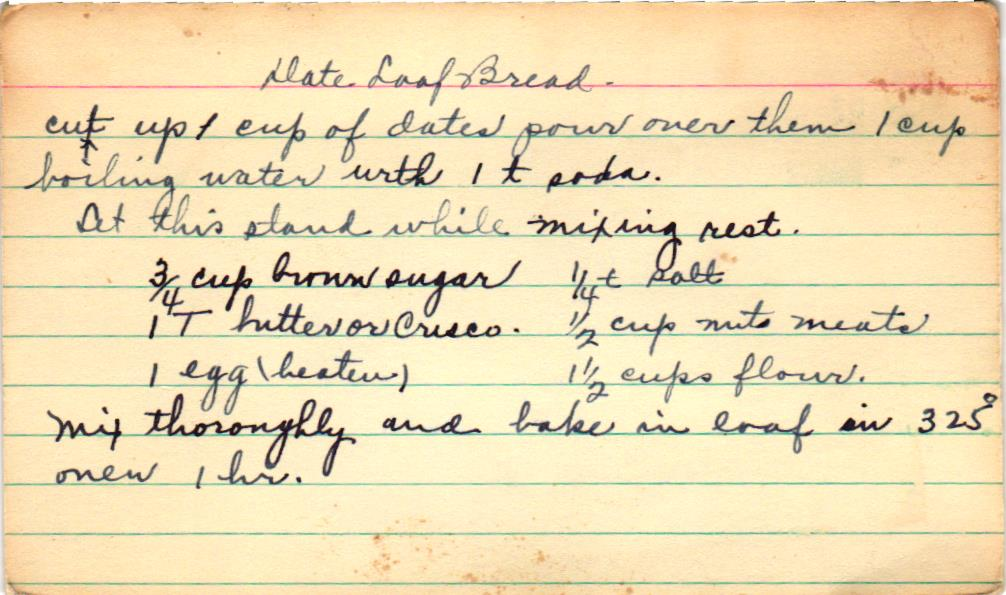 Date Loaf Bread.
cut up 1 cup of dates pour over them 1 cup
boiling water with 1 t soda.
Let this stand while mixing rest.
3/4 cup brown sugar 1/4 t salt
1 T butter or Crisco. 1/2 cup nuts meats
1 egg (beaten) 1 1/2 cups flour.
Mix thoroughly and bake in loaf in 325°
oven 1 hr.